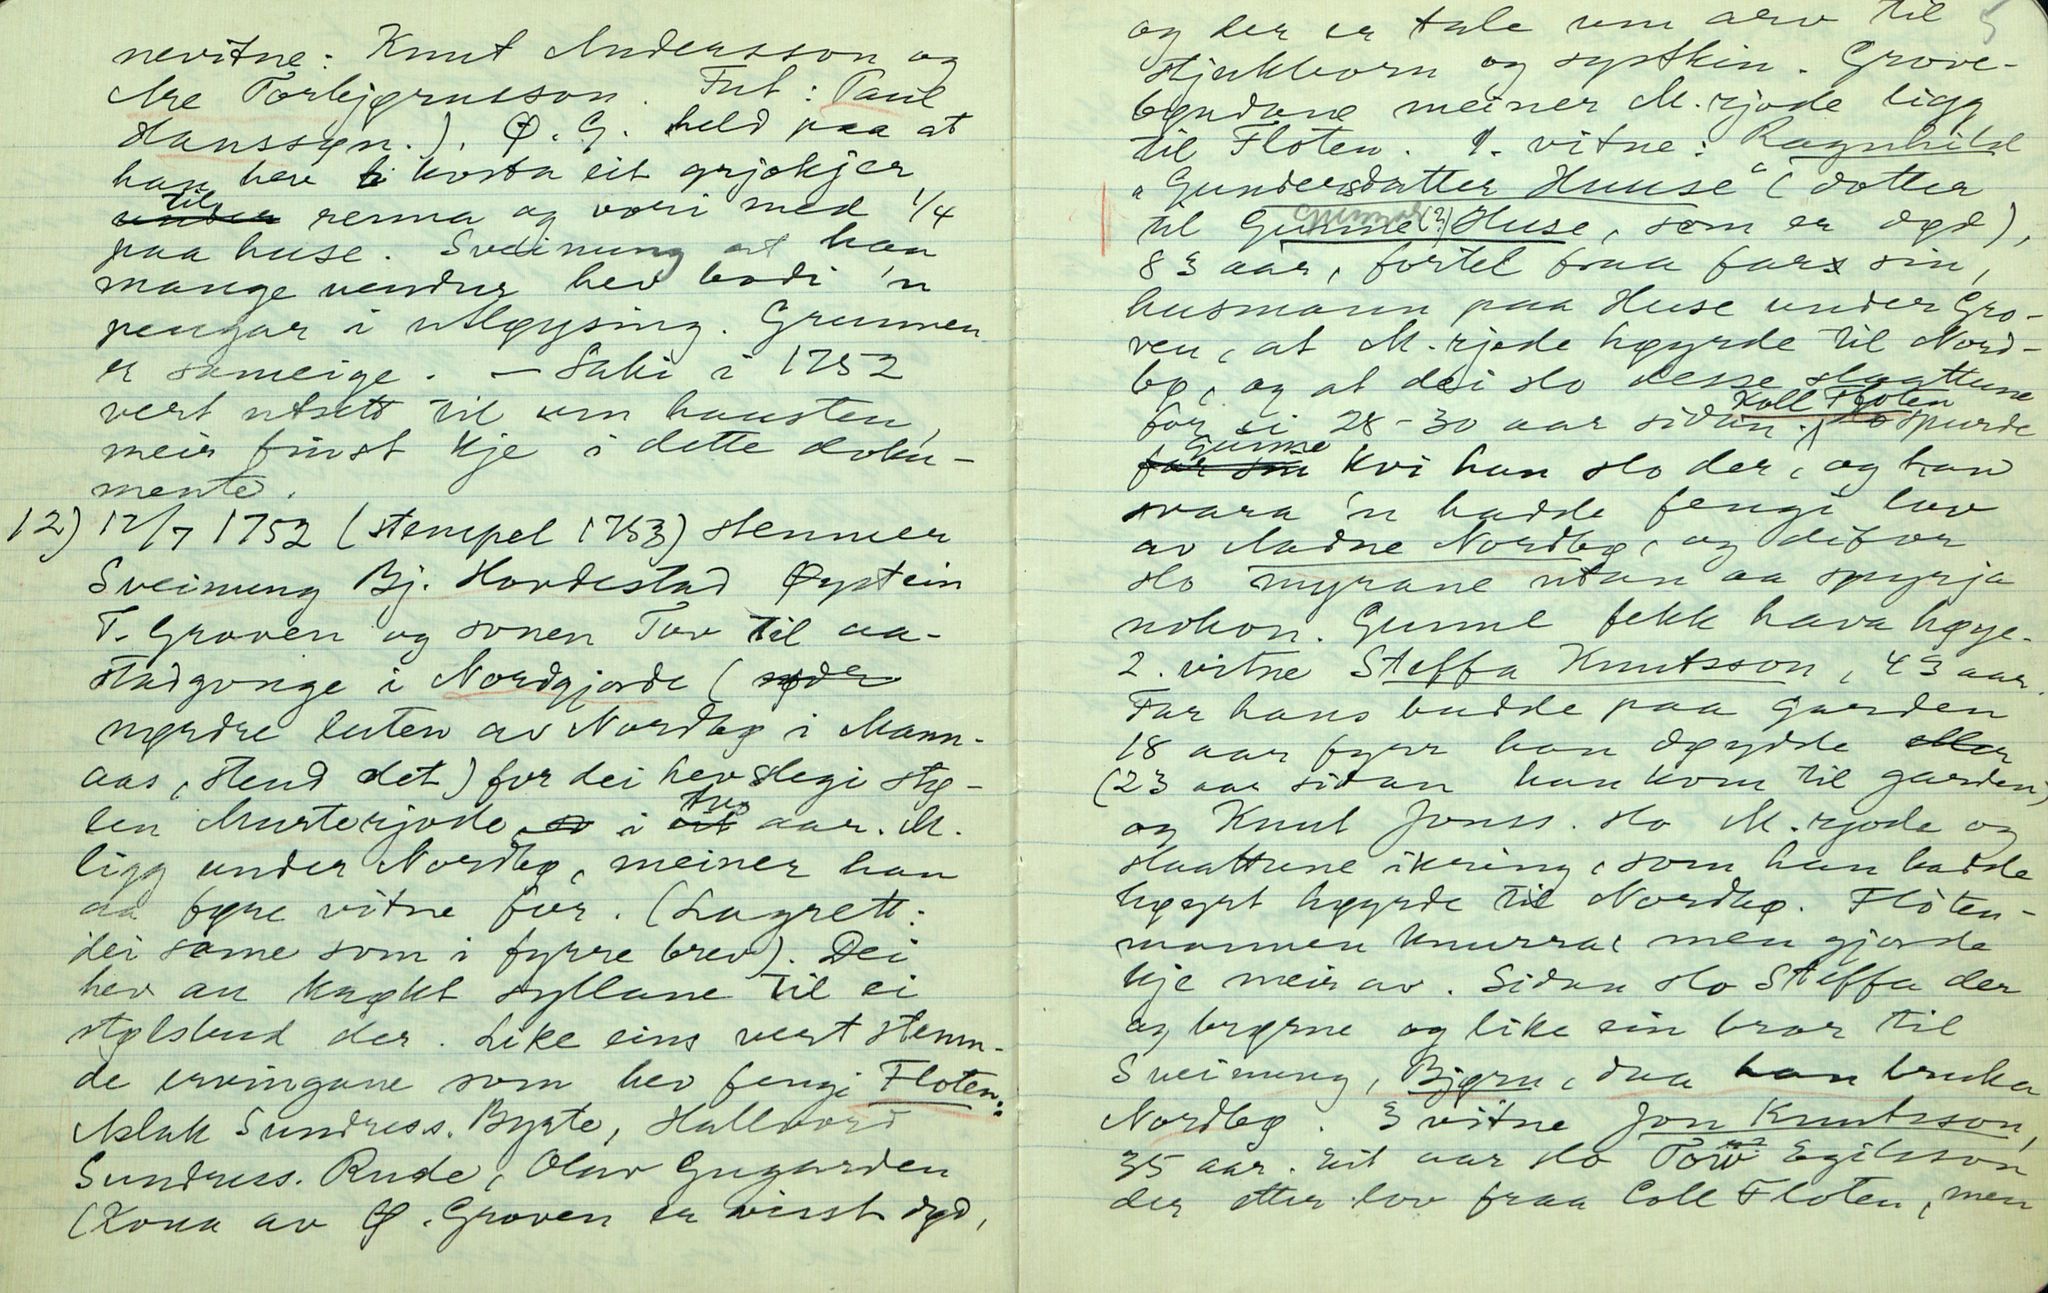 nevitne: Knut Andersson og
Are Torbjørnsson. Fut: Paul
Hanssøn.). Ø. G. held paa at
han hev kosta eit grjotkjer
til renna og vori med 1/4
paa huse. Sveinung at han
mange vendur hev bodi 'n
pengar i utløysing. Grunnen
er sameige. — Saki i 1752
vert utsett til um hausten,
meir finst kje i dette doku-
mente.
12) 12/7 1752 (stempel 1753) stemner
Sveinung Bj. Hovdestad Øystein
T. Groven og sonen Tov til aa-
stadgonge i Nordgjorde (søder
nørdre luten av Nordbø i Mann-
aas, stend det) for dei hev slegi stø-
len Murterjode i tvo aar. M.
ligg under Nordbø, meiner han
aa føre vitne for. (Lagrett:
dei same som i fyrre brev). Dei
hev au køyrt syllane til ei
stølsbud der. Like eins vert stemn-
de ervingane som hev fengi Floten:
Aslak Sundress. Byrte, Hallvord
Sundress. Rude, Olav Gugarden
(Kona av Ø. Groven er visst død,
5
og der er tale um arv til
stjukborn og systkin. Grove-
bøndane meiner M.rjode ligg
til Floten. 1. vitne: Ragnhild
"Gundersdatter Huuse" (dotter
til Gunne (?) Huse, som er død),
Gunnar
83 aar, fortel fraa far sin,
husmann paa Huse under Gro-
ven, at M.rjode høyrde til Nord-
bø, og at dei slo desse slaattune
for ei 28-30 aar sidan. Koll Floten spurde
far sin Gunne kvi han slo der, og han
svara 'n hadde fengi lov
av Aadne Nordbø, og difor
slo myrane utan aa spyrja
nokon. Gunne fekk hava høye.
2. vitne Steffa Knutsson, 43 aar.
Far hans budde paa garden
18 aar fyrr han døydde
(23 aar sidan han kom til garden)
og Knut Jonss. slo M.rjode og
slaattune ikring, som han hadde
høyrt høyrde til Nordbø. Floten-
mannen knurra, men gjorde
kje meir av. Sidan slo Steffa der
og brørne og like ein bror til
Sveinung, Bjørn, daa han bruka
Nordbø. 3 vitne Jon Knutsson,
35 aar. Eit aar slo Tov Egilsson
der etter lov fraa Coll Floten, men